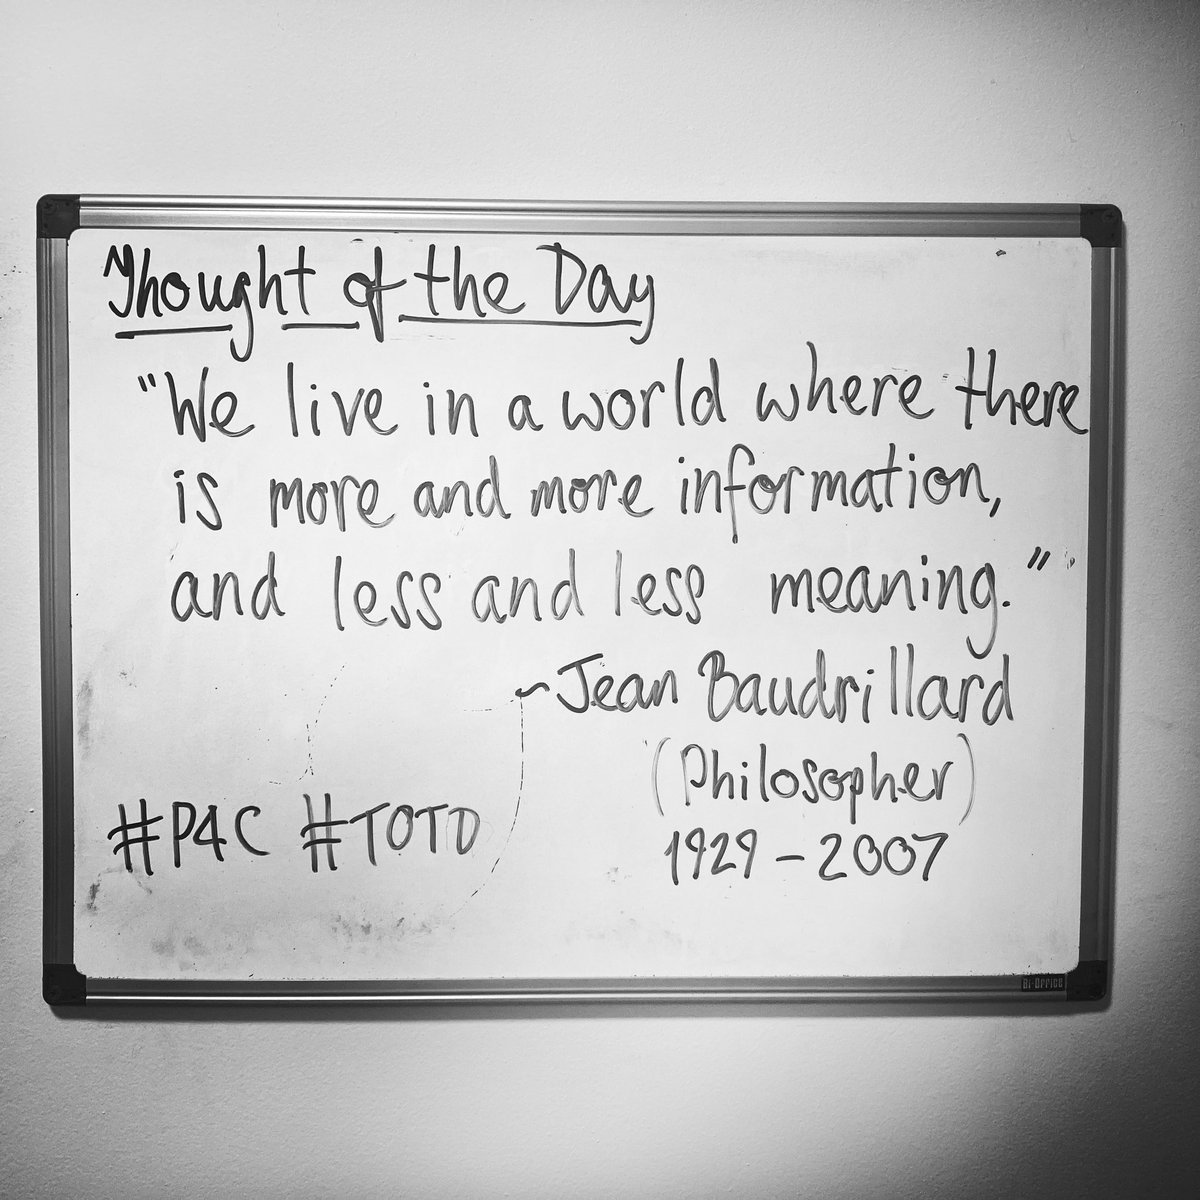 Thought of the Day
"We live in a world where there
is more and more information,
and less and less meaning."
~Jean Baudrillard
(Philosopher)
1929 - 2007
#P4C #TOTD
Bi-Office